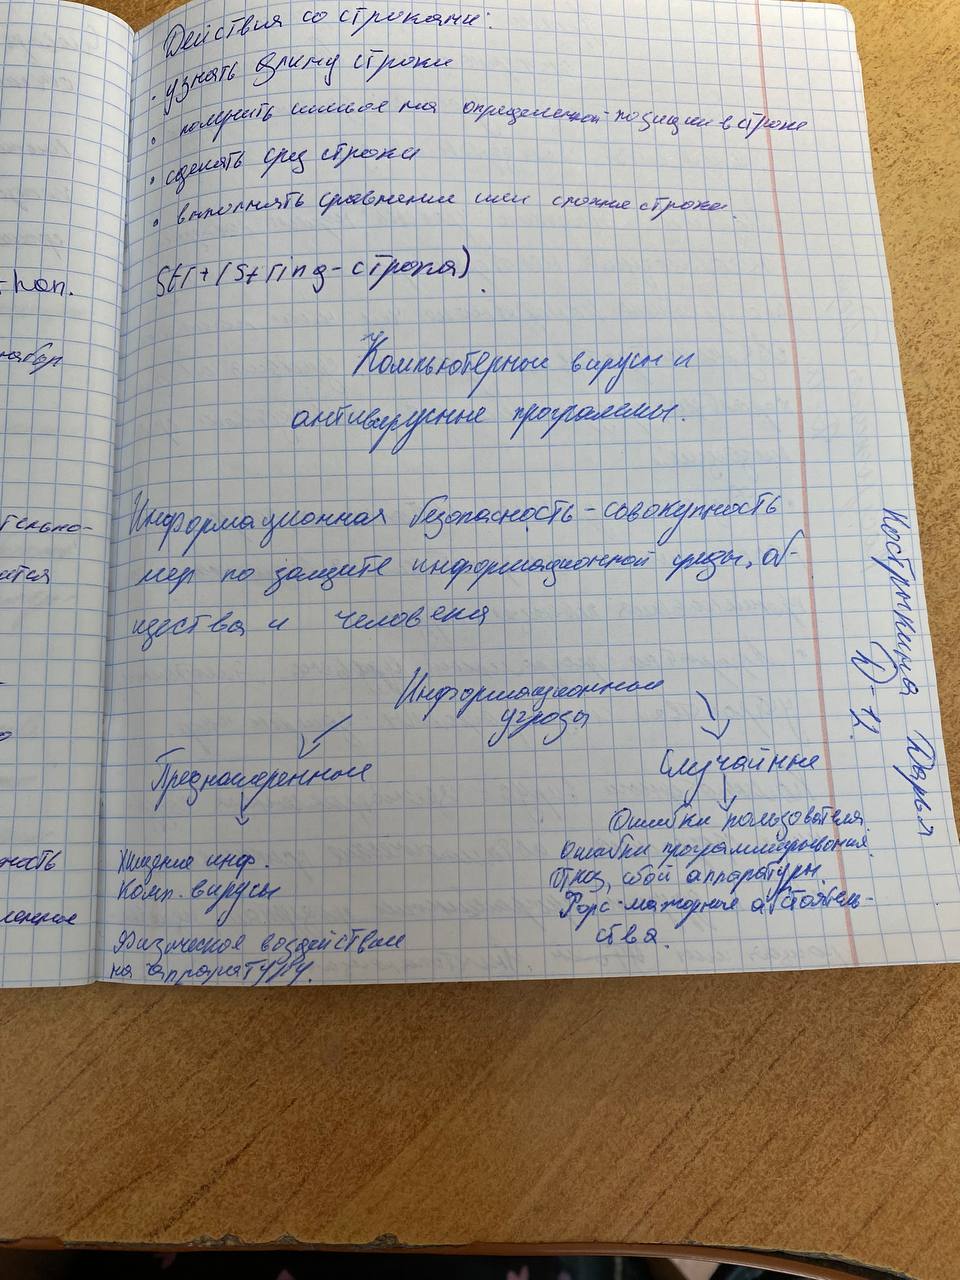 Действия со строками:
• узнать длину строки
• получить символ на определенной позиции в строке
• сделать срез строки
• выполнять сравнение или сложние строки.
Str + (String - строка)
Компьютерные вирусы и
антивирусные программы.
Информационная безопасность - совокупность
мер по защите информационной среды, об-
щества и человека
Информационные
угрозы
Преднамеренные
Случайные
Хищение инф.
Комп. вирусы
Физическое воздействие
на аппаратуру.
Ошибки пользователя.
Ошибки программирования.
Отказ, сбой аппаратуры.
Форс-мажорные обстоятель-
ства.
Кострыкина Дарья
набор
тельно-
ится
ность